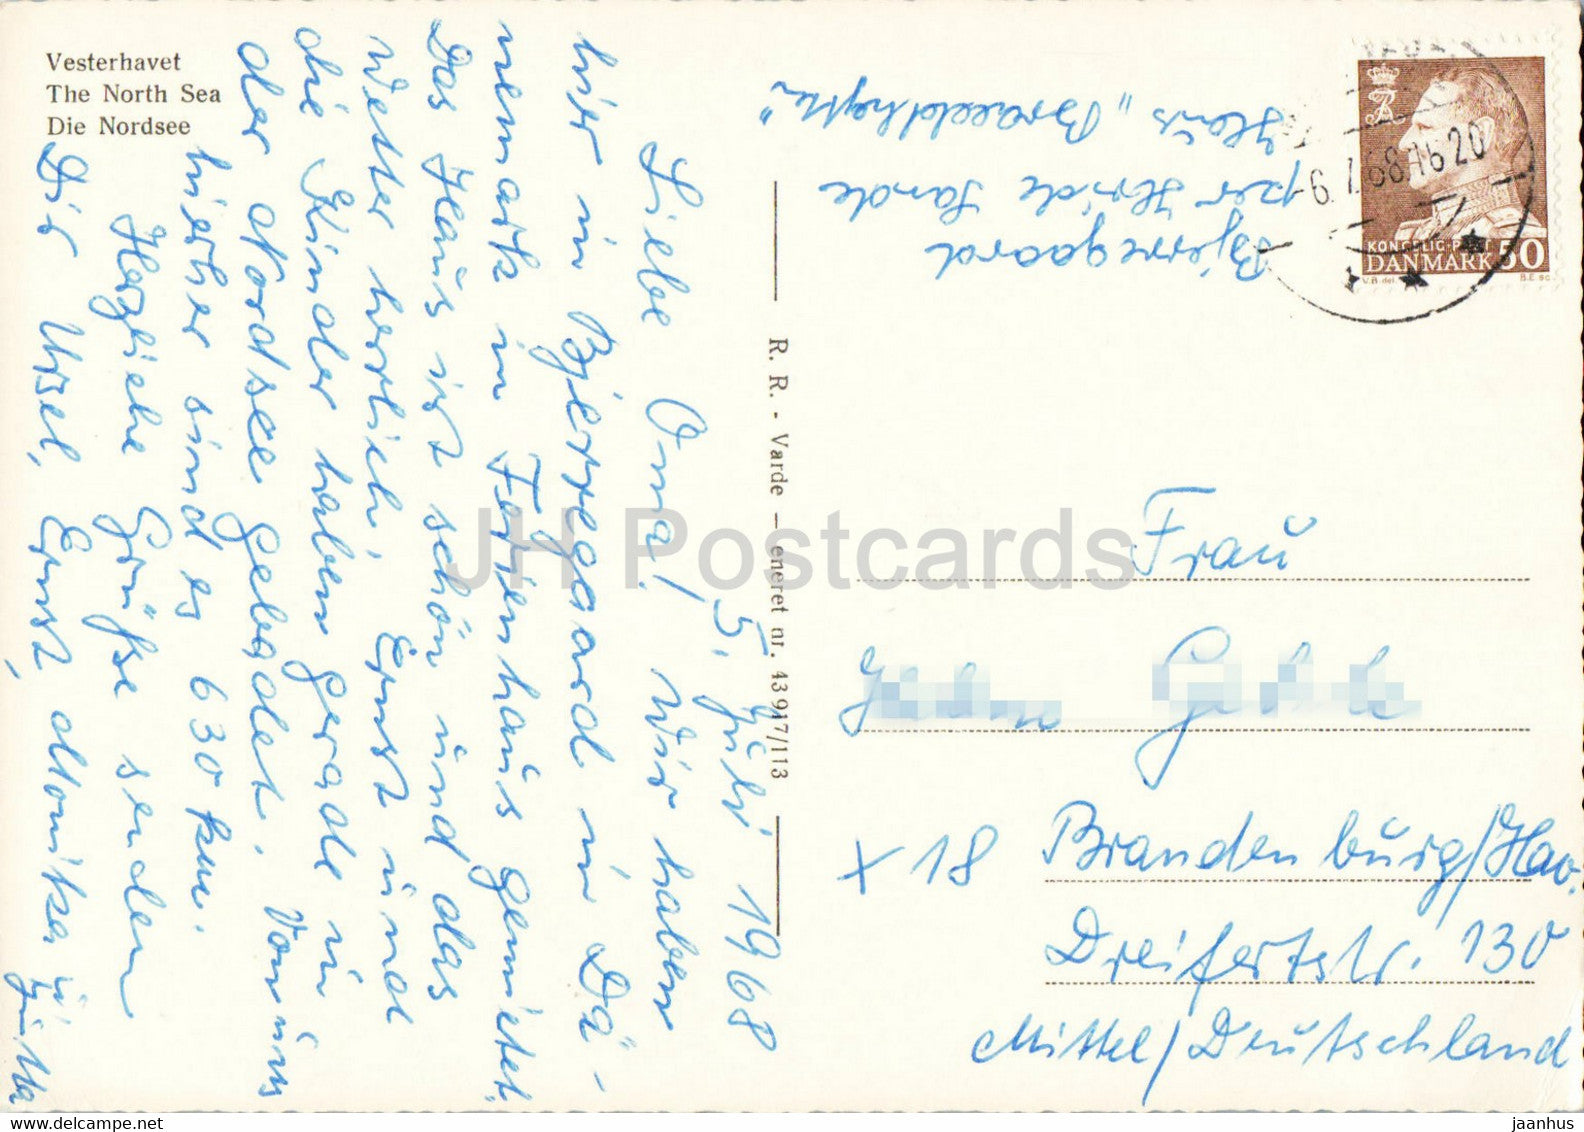 Vesterhavet
The North Sea
Die Nordsee
5. Juli 1968
Liebe Oma! Wir haben
hier in Bjerregaard in Dä-
nemark in Ferienhaus gemietet.
Das Haus ist schön und das
Wetter herrlich. Ernst und
die Kinder haben gerade in
der Nordsee gebadet. Von uns
hierher sind es 630 km.
Herzliche Grüße senden
Dir Ursel, Ernst, Monika u.
Jutta
R. R. - Varde — eneret nr. 43917/113
Bjerregaard
per Hvide Sande
Haus „
KONGELIG POST
DANMARK 50
V.B. del.
B.E. sc.
-6.7.68.16 20
Frau
x 18 Brandenburg/Hav.
Dreifertstr. 130
Mittel/Deutschland
JH Postcards
jaanhus